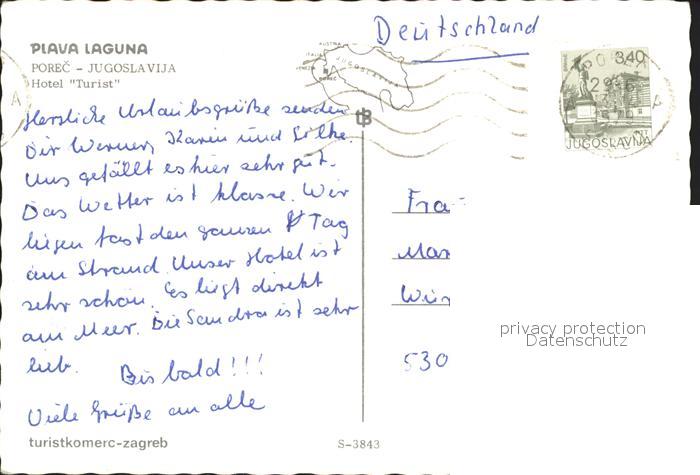 Deutschland
PLAVA LAGUNA
POREČ – JUGOSLAVIJA
Hotel "Turist"
Herzliche Urlaubsgrüße senden
Dir Werner, Karin und Silke.
Uns gefällt es hier sehr gut.
Das Wetter ist klasse. Wir
liegen fast den ganzen Tag
am Strand. Unser Hotel ist
sehr schön. Es liegt direkt
am Meer. Die Sandra ist sehr
lieb.
Bis bald!!!
Viele Grüße an alle
turistkomerc-zagreb
S-3843
AUSTRIA
JUGOSLAVIJA
POREČ
tB
3,40
JUGOSLAVIJA
Fra
Mar
Wür
530
privacy protection
Datenschutz